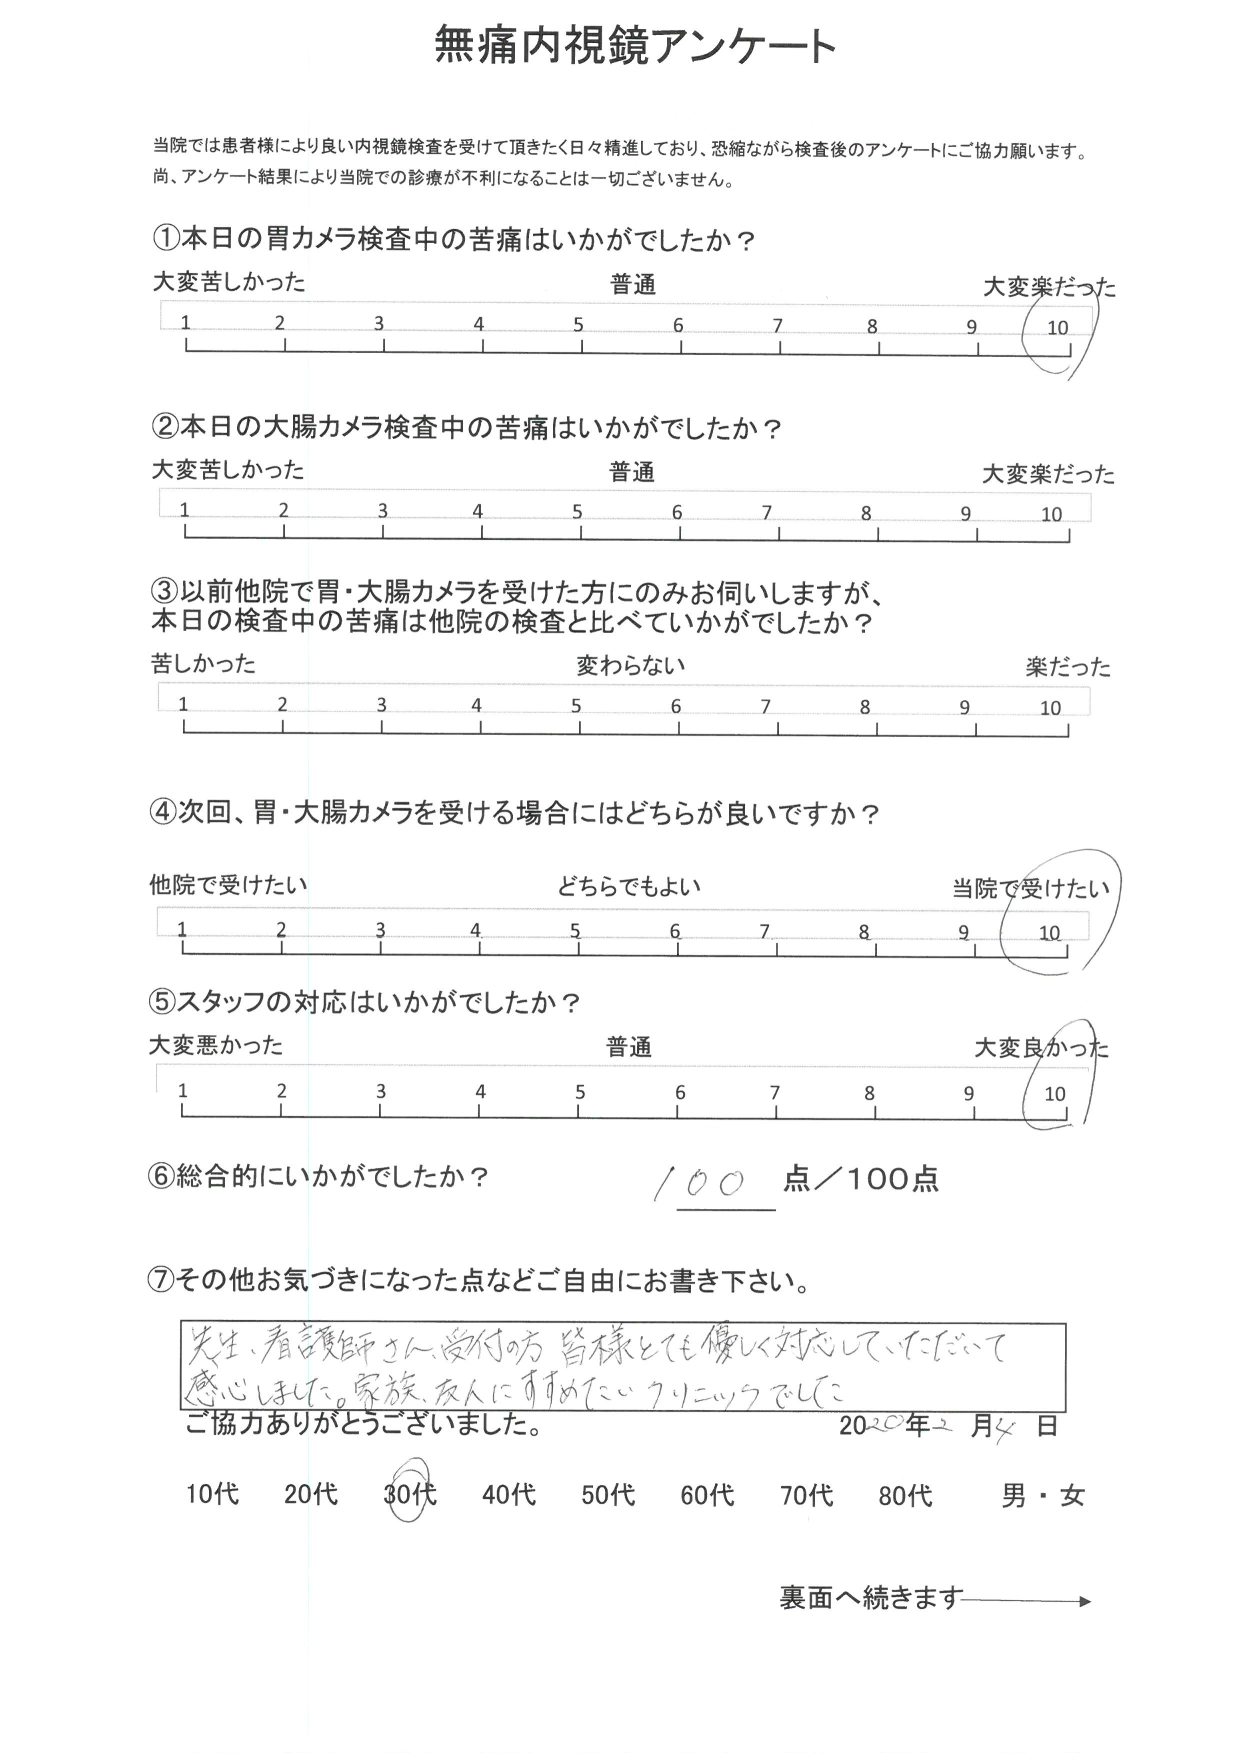 無痛内視鏡アンケート
当院では患者様により良い内視鏡検査を受けて頂きたく日々精進しており、恐縮ながら検査後のアンケートにご協力願います。
尚、アンケート結果により当院での診療が不利になることは一切ございません。
①本日の胃カメラ検査中の苦痛はいかがでしたか？
大変苦しかった 普通 大変楽だった
1 2 3 4 5 6 7 8 9 10
②本日の大腸カメラ検査中の苦痛はいかがでしたか？
大変苦しかった 普通 大変楽だった
1 2 3 4 5 6 7 8 9 10
③以前他院で胃・大腸カメラを受けた方にのみお伺いしますが、
本日の検査中の苦痛は他院の検査と比べていかがでしたか？
苦しかった 変わらない 楽だった
1 2 3 4 5 6 7 8 9 10
④次回、胃・大腸カメラを受ける場合にはどちらが良いですか？
他院で受けたい どちらでもよい 当院で受けたい
1 2 3 4 5 6 7 8 9 10
⑤スタッフの対応はいかがでしたか？
大変悪かった 普通 大変良かった
1 2 3 4 5 6 7 8 9 10
⑥総合的にいかがでしたか？ 100 点／100点
⑦その他お気づきになった点などご自由にお書き下さい。
先生、看護師さん、受付の方 皆様とても優しく対応していただいて
感心しました。家族、友人にすすめたいクリニックでした
ご協力ありがとうございました。 2020年2月4日
10代 20代 30代 40代 50代 60代 70代 80代 男・女
裏面へ続きます